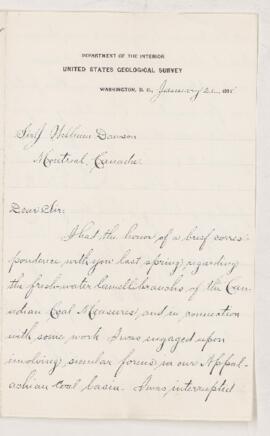 DEPARTMENT OF THE INTERIOR
UNITED STATES GEOLOGICAL SURVEY
WASHINGTON, D. C., January
Sir J. William Dawson
Montreal, Canada.
Dear Sir:
I had the honor of a brief corres-
pondence with you last spring regarding
the fresh-water lamellibranchs of the Can-
adian Coal Measures, and in connection
with some work I was engaged upon
involving similar forms in our Appal-
achian Coal basin. I was interrupted